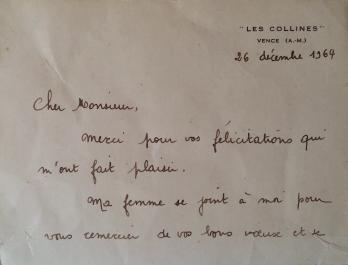 "LES COLLINES"
VENCE (A.-M.)
26 décembre 1964
Cher Monsieur,
Merci pour vos félicitations qui
m'ont fait plaisir.
Ma femme se joint à moi pour
vous remercier de vos bons vœux et se